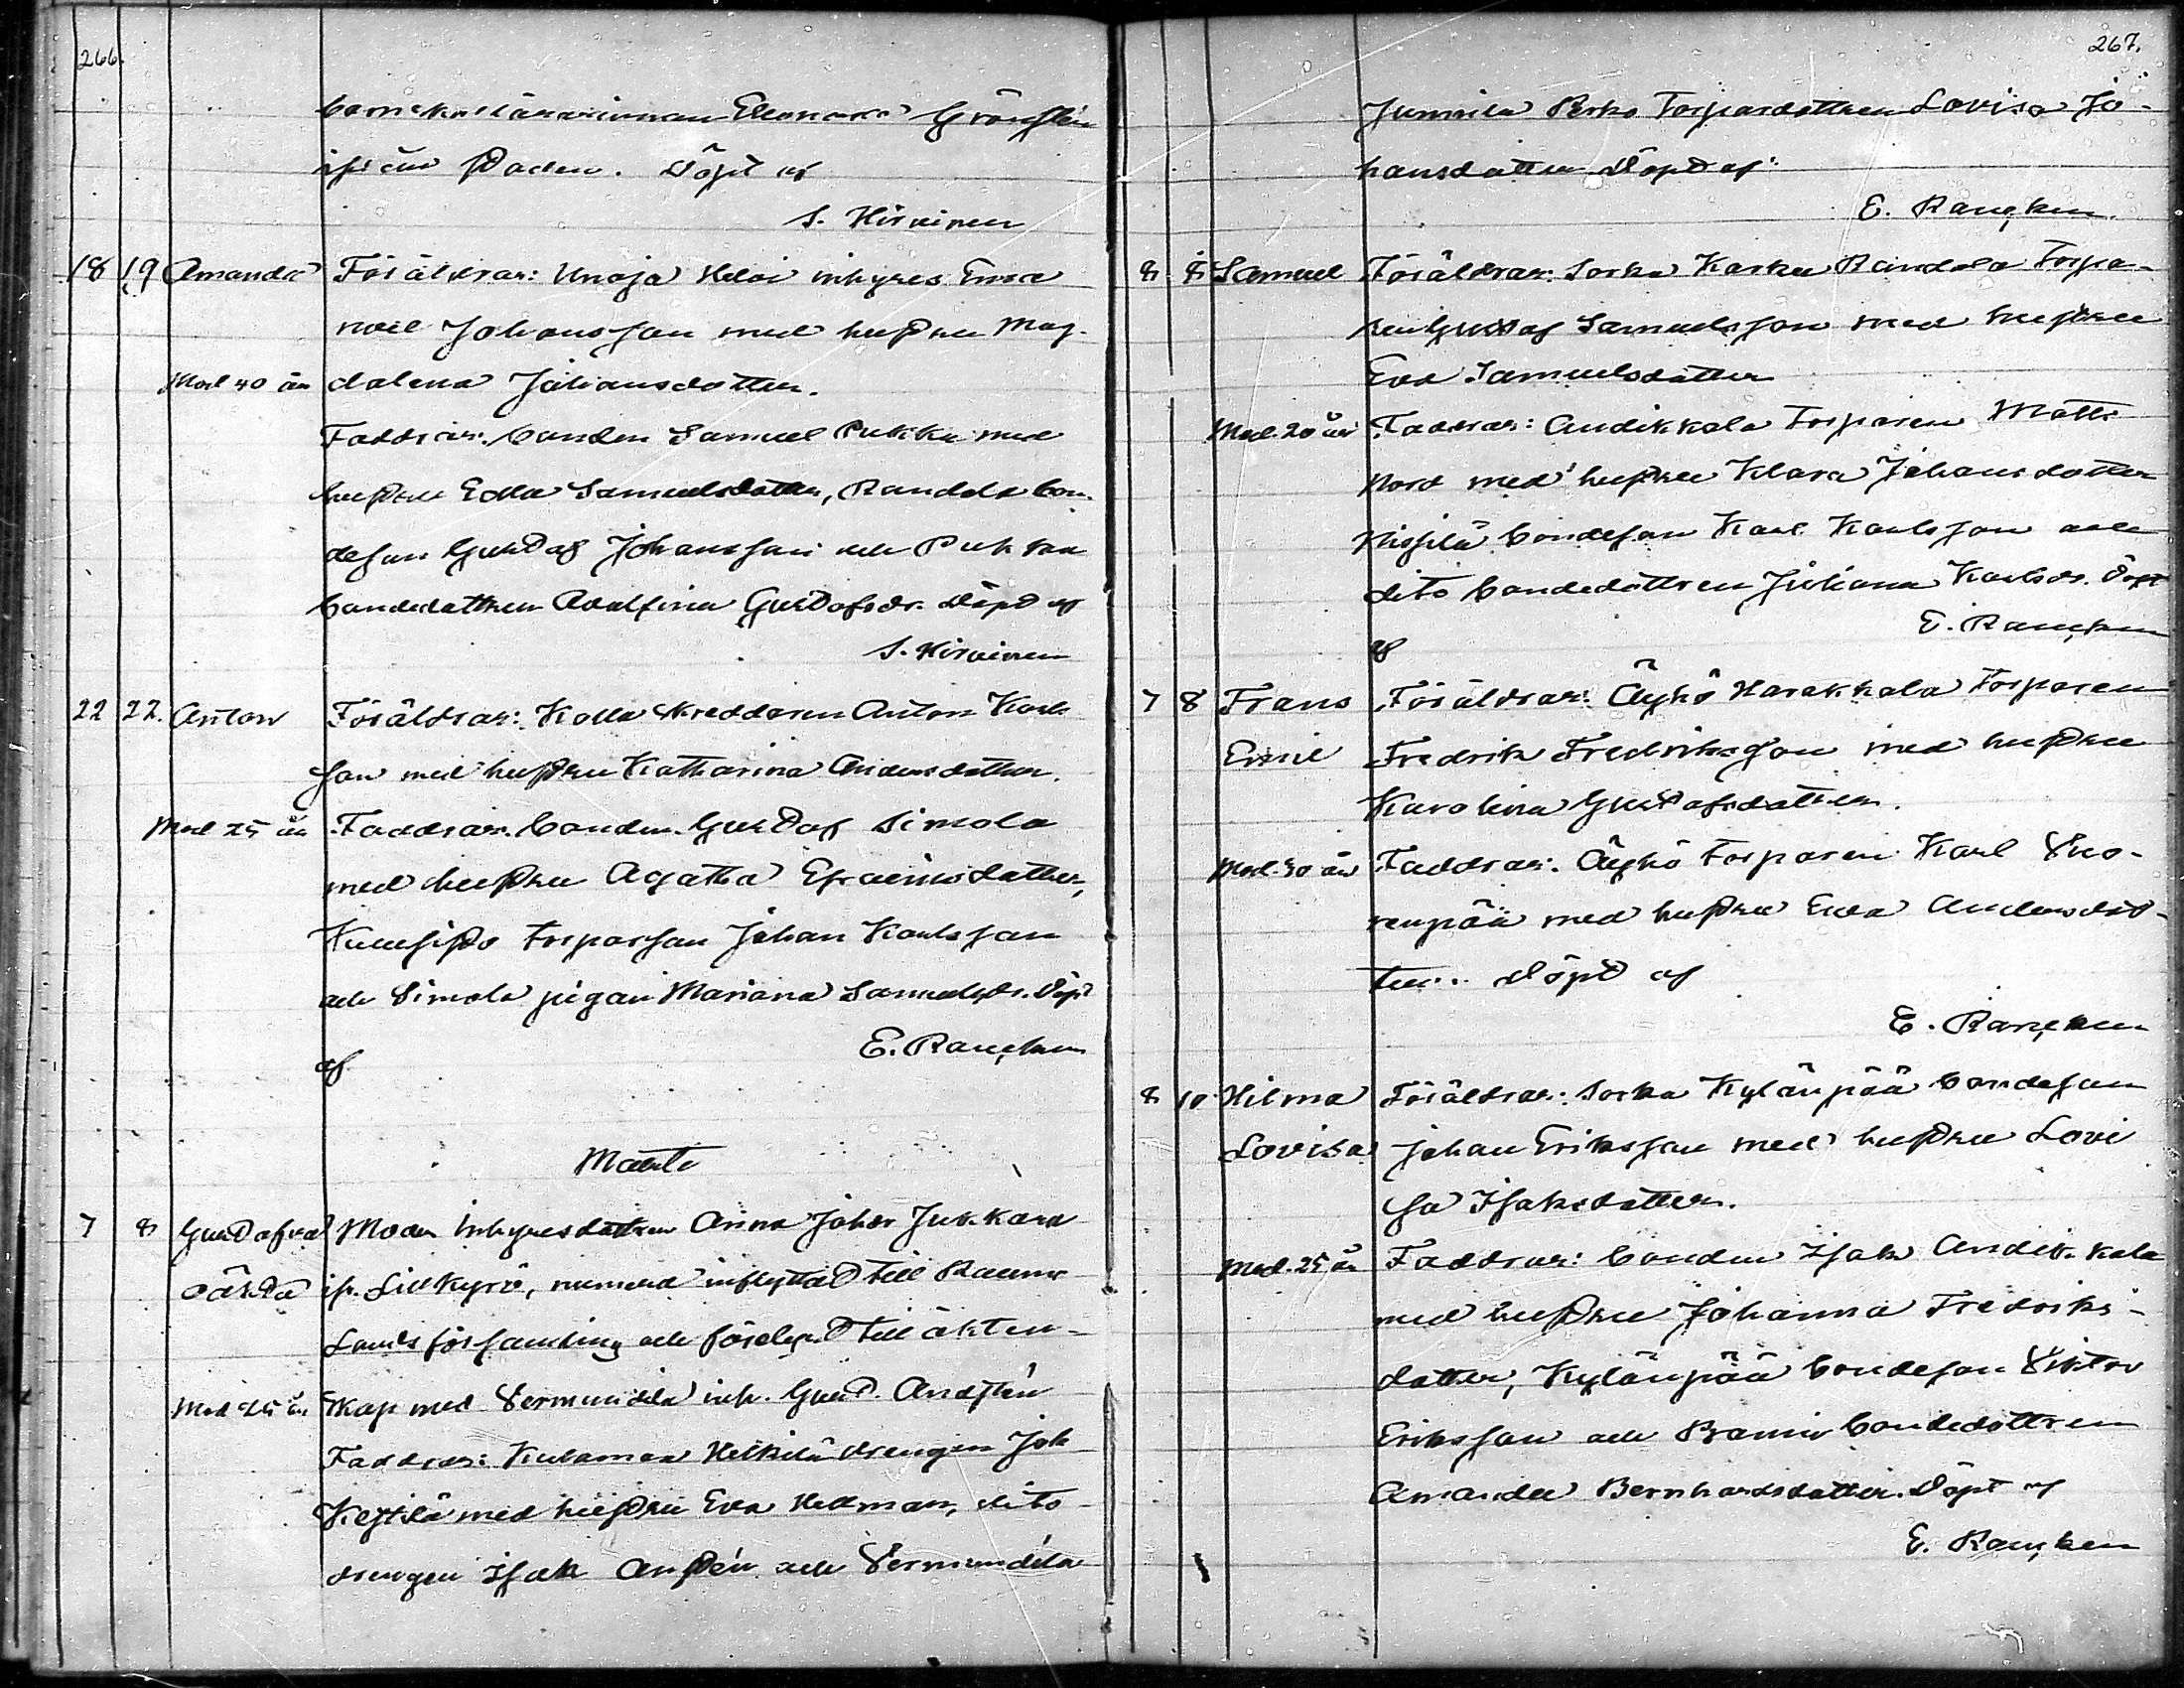 266.
barnskollärarinnan Eleonora Grönsten
ifrån staden. Döpt af
S. Hirvinen
18 19 Amanda Föräldrar: Unaja Heloi inhyses Ema
nuel Johansson med hustru Mag-
Mod 40 år dalena Juliansdotter.
Faddrar: bonden Samuel Pukka med
hustru Edla Samuelsdotter, Randala bon-
deson Gustaf Johansson och Pukkan
bondedottren Adolfina Gustafsdr. Döpt af
S. Hirvinen
22 22. Anton Föräldrar: Kolla skreddaren Anton Karls
son med hustru Katharina Andersdotter.
Mod 25 år Faddrar. bonden Gustaf Simola
med hustru Agatha Efraimsdotter,
torparson Johan Karlsson
och Simola pigan Mariana Samuelsdr. Döpt
af E. Rancken
Martii
7 8 Gustafva Modr inhysesdottren Anna Johdr Jukkara
oäkta ifr. Lillkyro, numera inflyttad till Raumo
Landsförsamling och förelyst till äkten-
Mod 25 år skap med Vermundila inh. Gust. Andsten
Faddrar: Kulamaa Heikilä drengen Joh
Kestilä med hustru Eva Hedman, dito
drengen Isak Ansten och Vermundila
267.
Junnila Perho Torpardottren Lovisa Jo-
hansdotter Döpt af
E. Rancken.
8 8 Samuel Föräldrar: Sorka Karku Randala Torpa-
ren Gustaf Samuelsson med hustru
Eva Samuelsdotter
Mod. 20 år Faddrar: Andikkala Torparen Matts
Nord med hustru Klara Johansdotter
Nissilä bondeson Karl Karlsson och
dito bondedottren Juliana Karlsdr. Döpt
af E. Rancken
7 8 Frans Föräldrar: Äyhö Harakkala Torparen
Emil Fredrik Fredriksson med hustru
Karolina Gustafsdotter.
Mod. 30 år Faddrar: Äyhö Torparen Karl Vuo-
renpää med hustru Eva Andersdot-
ter. Döpt af
E. Rancken
8 10 Hilma Föräldrar: Sorka Kylänpää bondeson
Lovisa Johan Eriksson med hustru Lovi
sa Isaksdotter.
Mod. 25 år Faddrar: bonden Isak Andikkala
med hustru Johanna Fredriks-
dotter, Kylänpää bondeson Viktor
Eriksson och bondedottren
Amanda Bernhardsdotter. Döpt af
E. Rancken